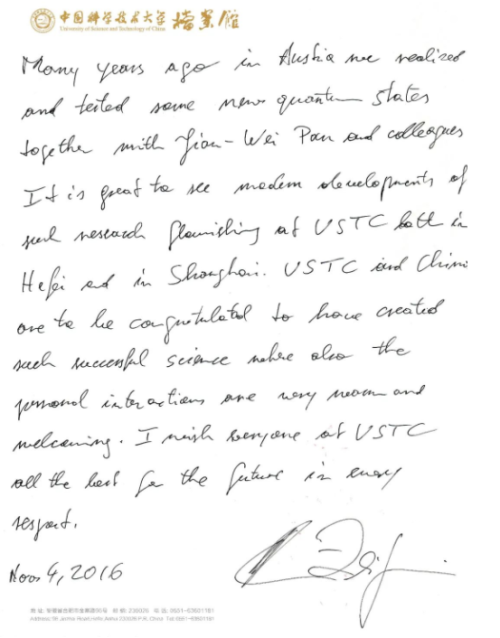 中国科学技术大学 档案馆
University of Science and Technology of China
Many years ago in Austria we realized
and tested some new quantum states
together with Jian-Wei Pan and colleagues
It is great to see modern developments of
such research flourishing at USTC both in
Hefei and in Shanghai. USTC and China
are to be congratulated to have created
such successful science where also the
personal interactions are very warm and
welcoming. I wish everyone at USTC
all the best for the future in every
respect.
Nov 4, 2016